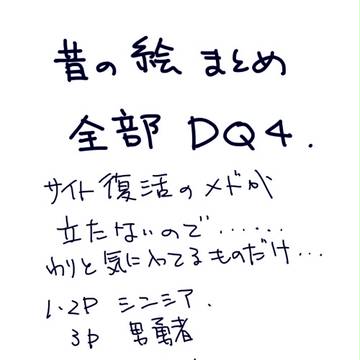 昔の絵まとめ
全部 DQ4.
サイト復活のメドが
立たないので......
わりと気に入ってるものだけ...
1.2P シンシア.
3P 男勇者